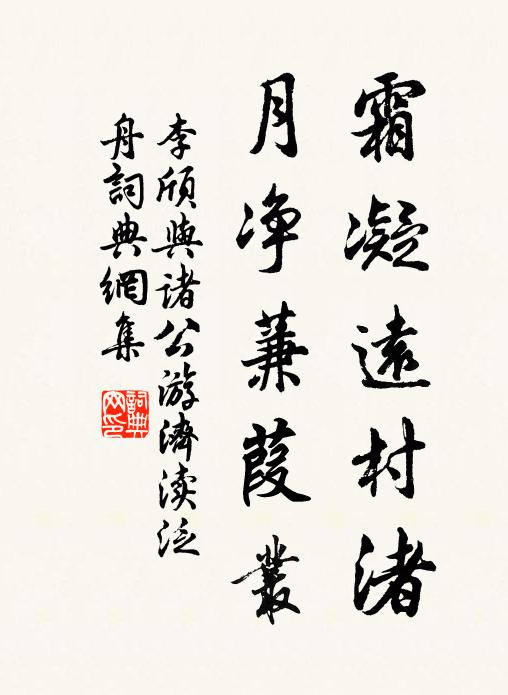 霜凝遠村渚
月净蒹葭叢
李頎與諸公游濟渎泛
舟詞典網集
詞典
网印